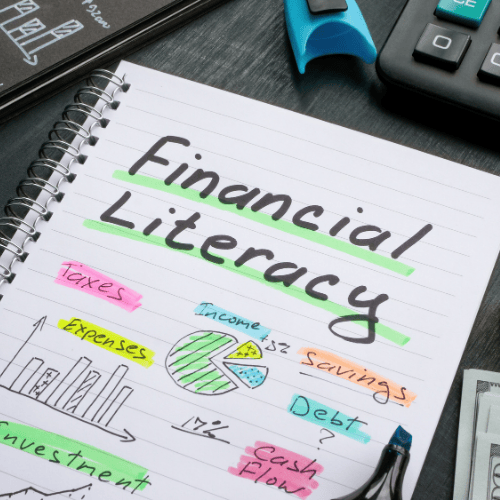 Financial
Literacy
Taxes
Income
Expenses
Savings
Debt
?
17%
Cash
Flow
Investment
0